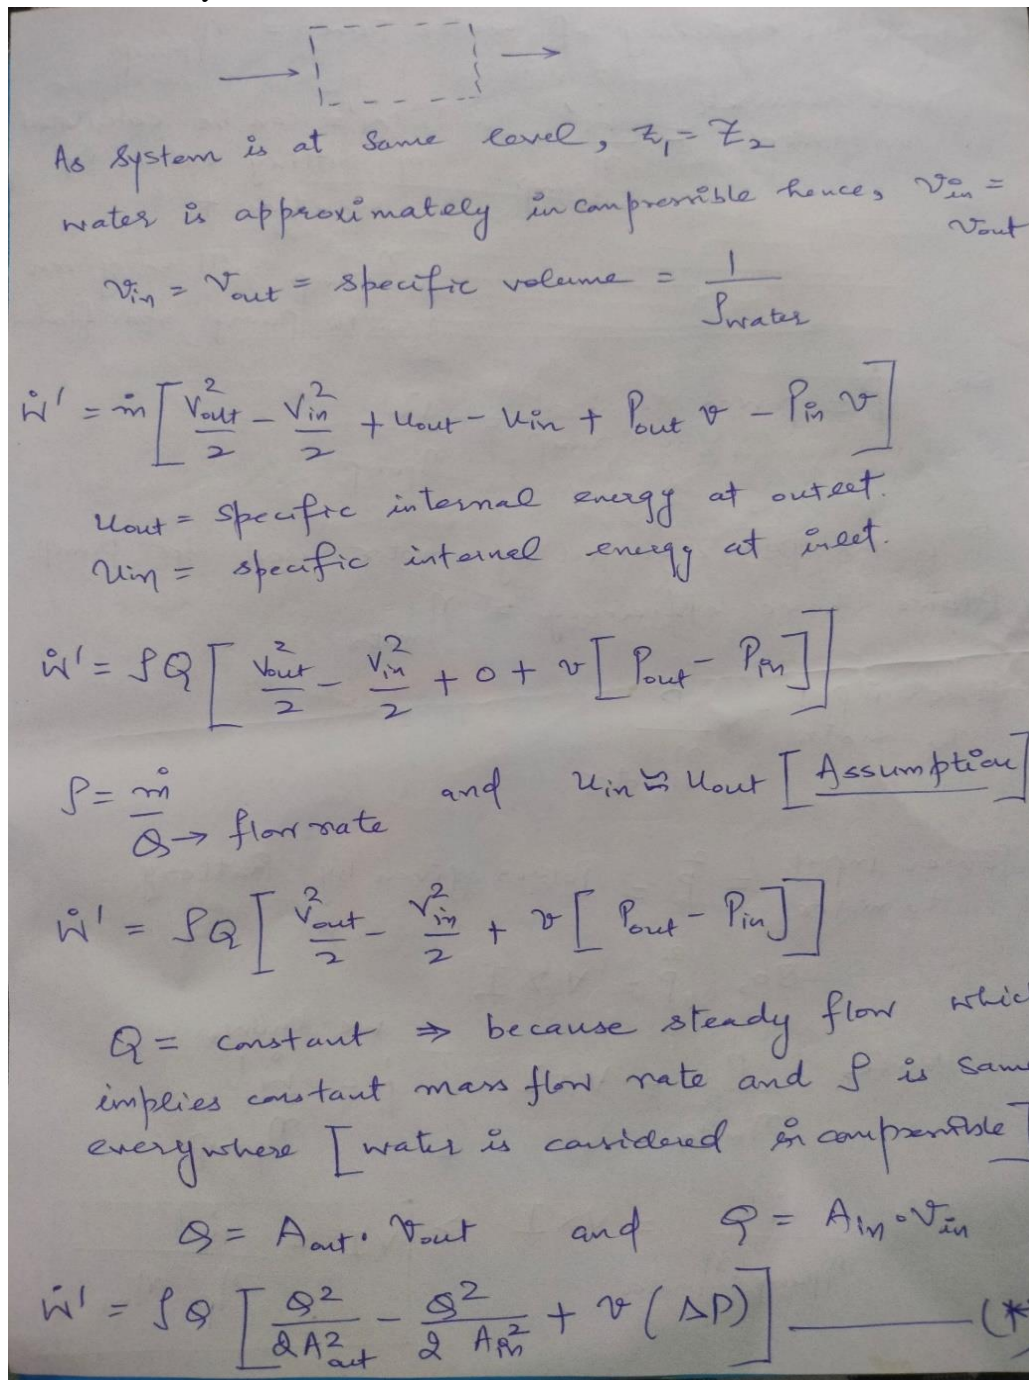 As system is at same level, z₁ = z₂
water is approximately incompressible hence, vin =
vout
vin = vout = specific volume = 1/ρwater
Ẇ' = ṁ [ Vout²/2 - Vin²/2 + uout - uin + Pout v - Pin v ]
uout = specific internal energy at outlet.
uin = specific internal energy at inlet.
Ẇ' = ρQ [ Vout²/2 - Vin²/2 + 0 + v [ Pout - Pin ] ]
ρ = ṁ/Q → flow rate and uin ≈ uout [ Assumption ]
Ẇ' = ρQ [ Vout²/2 - Vin²/2 + v [ Pout - Pin ] ]
Q = constant ⇒ because steady flow whic
implies constant mass flow rate and ρ is sam
everywhere [ water is considered incompressible ]
Q = Aout · Vout and Q = Ain · Vin
Ẇ' = ρQ [ Q²/2A²out - Q²/2 Ain² + v (ΔP) ] (*